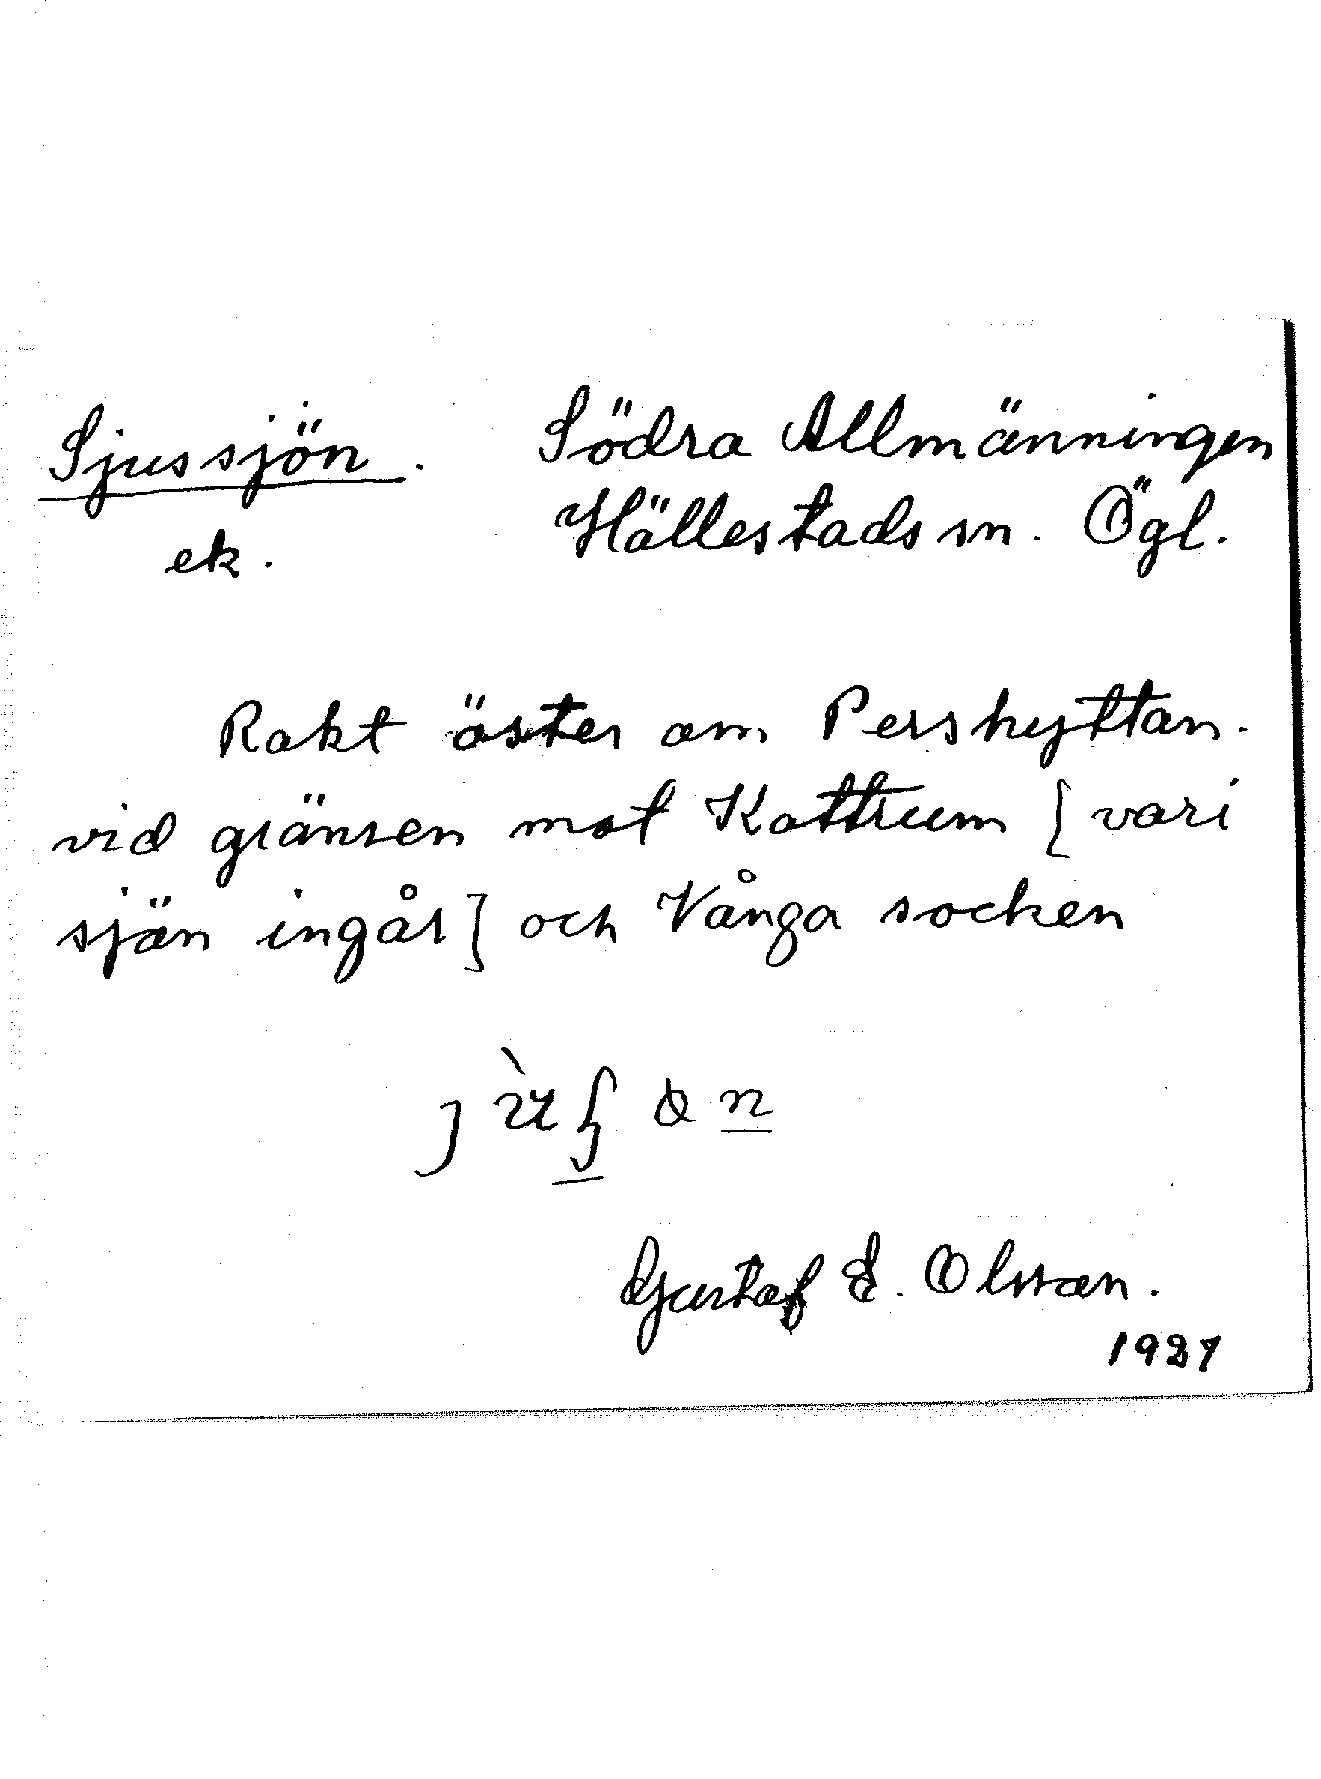 Sjussjön. Södra Allmänningen
ek. Hällestads sn. Ögl.
Rakt öster om Pershyttan.
vid gränsen mot Kattrum [vari
sjön ingår] och Vånga socken
Gustaf E. Olsson.